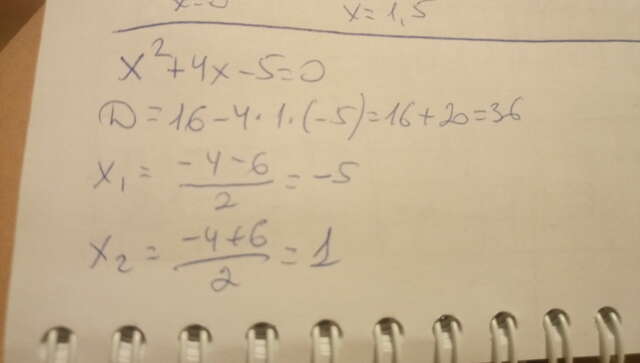 x = 1,5
x² + 4x - 5 = 0
D = 16 - 4 · 1 · (-5) = 16 + 20 = 36
x₁ = (-4 - 6)/2 = -5
x₂ = (-4 + 6)/2 = 1